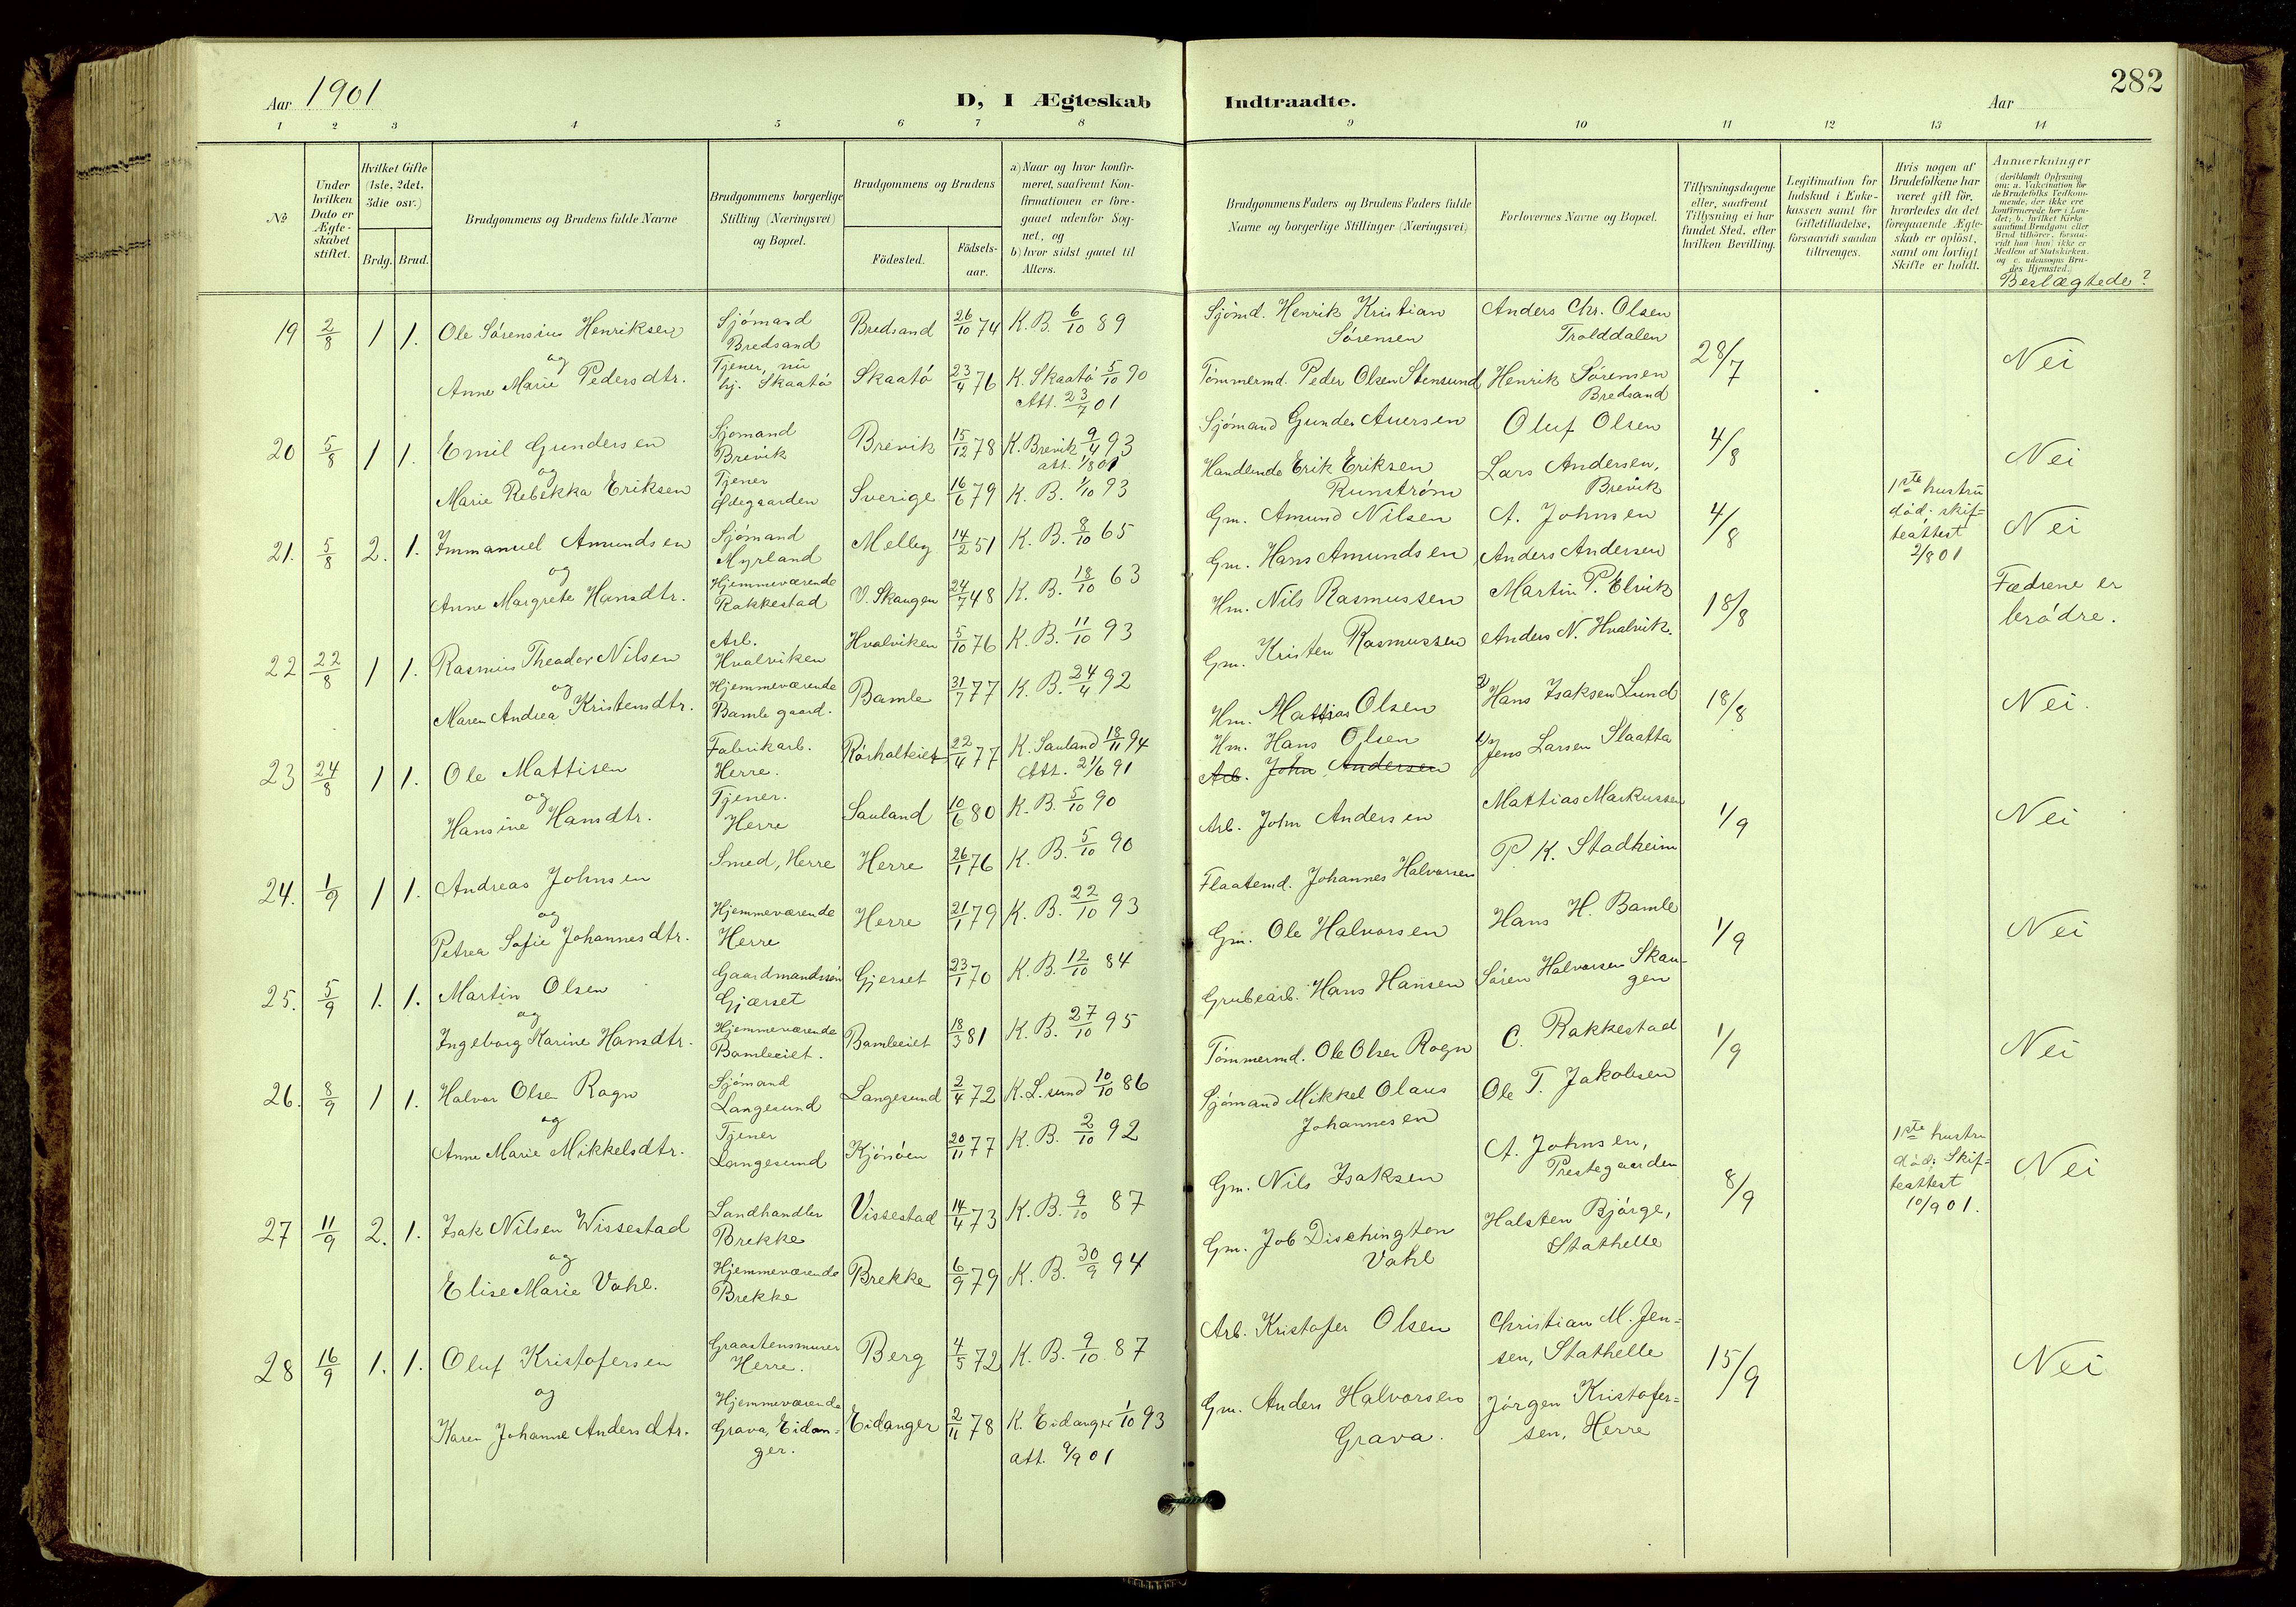 Aar 1901
D, I Ægteskab Indtraadte.
Aar
282
1 2 3 4 5 6 7 8 9 10 11 12 13 14
№
Under hvilken Dato er Ægteskabet stiftet.
Hvilket Gifte (1ste, 2det, 3die osv.)
Brdg. Brud.
Brudgommens og Brudens fulde Navne
Brudgommens borgerlige Stilling (Næringsvei) og Bopæl.
Brudgommens og Brudens
Födested.
Födsels-aar.
a) Naar og hvor konfirmeret, saafremt Konfirmationen er foregaaet udenfor Sognet, og
b) hvor sidst gaaet til Alters.
Brudgommens Faders og Brudens Faders fulde Navne og borgerlige Stillinger (Næringsvei)
Forlovernes Navne og Bopæl.
Tillysningsdagene eller, saafremt Tillysning ei har fundet Sted, efter hvilken Bevilling.
Legitimation for Indskud i Enkekassen samt for Giftetilladelse, forsaavidt saadan tiltrænges.
Hvis nogen af Brudefolkene har været gift før, hvorledes da det foregaaende Ægteskab er oplöst, samt om lovligt Skifte er holdt.
Anmerkninger
(deriblandt Oplysning om: a. Vakcination for de Brudefolks Vedkommende, der ikke ere konfirmerede her i Landet; b. hvilket Kirkesamfund Brudgom eller Brud tilhörer, forsaavidt han (hun) ikke er Medlem af Statskirken, og c. udensogns Brudes Hjemsted.)
Beslægtede?
19 2/8 1 1. Ole Sørensius Henriksen
Sjómand Bredsand
Bredsand 26/10 74 K. B. 6/10 89
Sjömd. Henrik Kristian Sörensen
Anders Chr. Olsen Trolddalen
28/7
Nei
og
Anne Marie Pedersdtr.
Tjener, nu hj. Skaató
Skaató 23/4 76 K. Skaató 5/10 90
Att. 23/7 01
Tömmermd. Peder Olsen Stensund
Henrik Sörensen Bredsand
20 5/8 1 1. Emil Gundersen
Sjomand Brevik
Brevik 15/12 78 K. Brevik 9/4 93
att. 1/8 01
Sjómand Gunder Auersen
Oluf Olsen
4/8
Nei
og
Marie Rebekka Eriksen
Tjener Ødegaarden
Sverige 16/6 79 K. B. 1/10 93
Handlende Erik Eriksen Runström
Lars Andersen, Brevik
21. 5/8 2. 1. Immanuel Amundsen
Sjómand Myrland
Melby 14/2 51 K. B. 8/10 65
Gm. Amund Nilsen
A. Johnsen
4/8
1ste hustru död. skifteattest 2/8 01
Nei
og
Anne Margrete Hansdtr.
Hjemmeværende Rakkestad
V. Skaugen 24/7 48 K. B. 18/10 63
Gm. Hans Amundsen
Anders Andersen
22 22/8 1 1. Rasmus Theodor Nilsen
Arb. Hvalviken
Hvalviken 5/10 76 K. B. 11/10 93
Hm. Nils Rasmussen
Martin P. Elvik
18/8
Fædrene er brödre.
og
Maren Andrea Kristensdtr.
Hjemmeværende Bamle gaard.
Bamle 31/7 77 K. B. 24/4 92
Gm. Kristen Rasmussen
Anders N. Hvalvik.
23 24/8 1 1. Ole Mattisen
Fabrikarb. Herre.
Rörholteiet 22/4 77 K. Sauland 18/11 94
Att. 21/6 91
Hm. Mattias Olsen
2/ Hans Isaksen Lund
18/8
Nei.
og
Hansine Hansdtr.
Tjener. Herre
Sauland 10/6 80 K. B. 5/10 90
Hm. Hans Olsen
1/ Jens Larsen Slaatta
Arb. John Andersen
24. 1/9 1 1. Andreas Johnsen
Smed, Herre
Herre 26/1 76 K. B. 5/10 90
Arb. John Andersen
Mattias Markussen
1/9
Nei
og
Petrea Sofie Johannesdtr.
Hjemmeværende Herre
Herre 21/1 79 K. B. 22/10 93
Flaatemd. Johannes Halvorsen
P. K. Stadheim
25. 5/9 1. 1. Martin Olsen
Gaardmandssön Gjærset
Gjerset 23/1 70 K. B. 12/10 84
Gm. Ole Halvorsen
Hans H. Bamle
1/9
Nei
og
Ingeborg Karine Hansdtr.
Hjemmeværende Bamleeiet.
Bamleeiet 18/3 81 K. B. 27/10 95
Grubearb. Hans Hansen
Sören Halvorsen Skaugen
26. 8/9 1 1. Halvor Olsen Rogn
Sjómand Langesund
Langesund 2/4 72 K. L.sund 10/10 86
Tömmermd. Ole Olsen Rogn
C. Rakkestad
1/9
Nei
og
Anne Marie Mikkelsdtr.
Tjener Langesund
Kjönöen 20/11 77 K. B. 2/10 92
Sjómand Mikkel Olaus Johannesen
Ole T. Jakobsen
27 11/9 2. 1. Isak Nilsen Wissestad
Landhandler Brekke
Vissestad 14/4 73 K. B. 9/10 87
Gm. Nils Isaksen
A. Johnsen, Prestegaarden
8/9
1ste hustru död. Skifteattest 10/9 01.
Nei
og
Elise Marie Vahl.
Hjemmeværende Brekke
Brekke 6/9 79 K. B. 30/9 94
Gm. Job Dischington Vahl
Halsten Bjórge, Stathelle
28 16/9 1. 1. Oluf Kristofersen
Graastensmurer Herre.
Berg 4/5 72 K. B. 9/10 87
Arb. Kristofer Olsen
Christian M. Jensen, Stathelle
15/9
Nei
og
Karen Johanne Andersdtr.
Hjemmeværende Grava, Eidanger.
Eidanger 2/11 78 K. Eidanger 1/10 93
att. 9/9 01
Gm. Anders Halvorsen Grava.
Jórgen Kristofersen, Herre